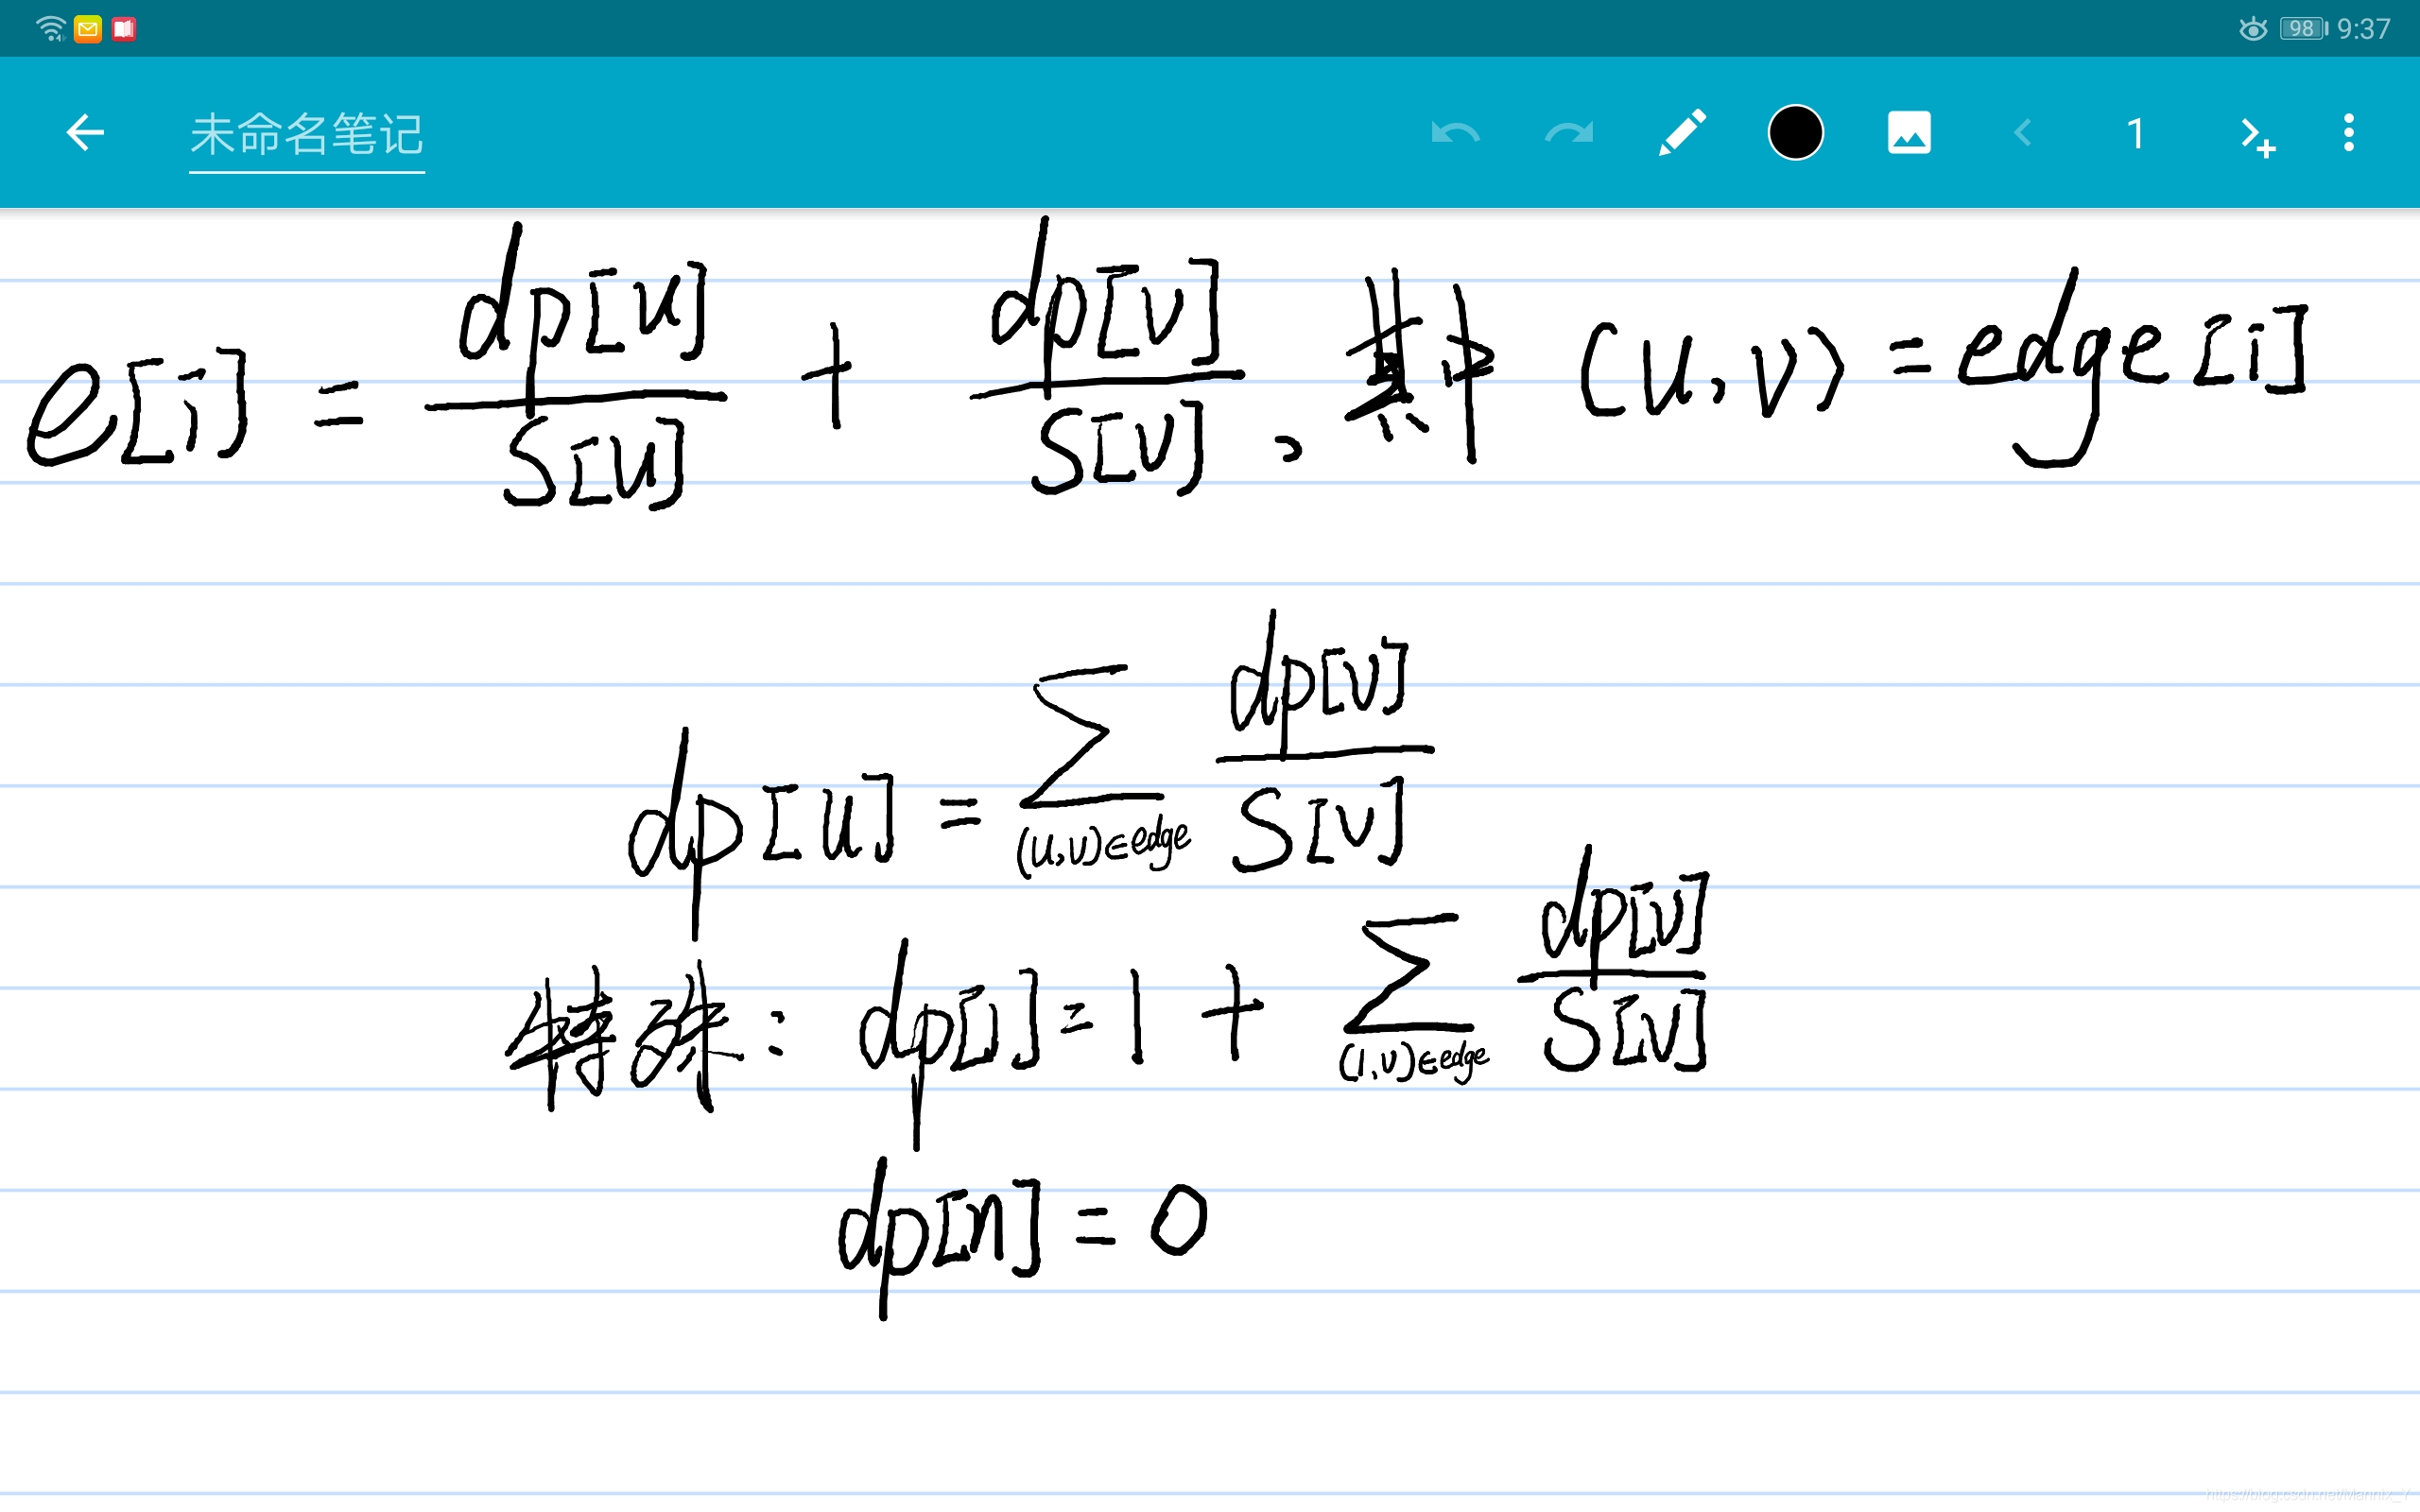 98 9:37
未命名笔记 1
e[i] = dp[u]/S[u] + dp[v]/S[v], 其中 (u,v) = edge[i]
dp[u] = ∑(u,v)∈edge dp[v]/S[v]
特殊: dp[1] = 1 + ∑(1,v)∈edge dp[v]/S[v]
dp[n] = 0
https://blog.csdn.net/Mannix_Y